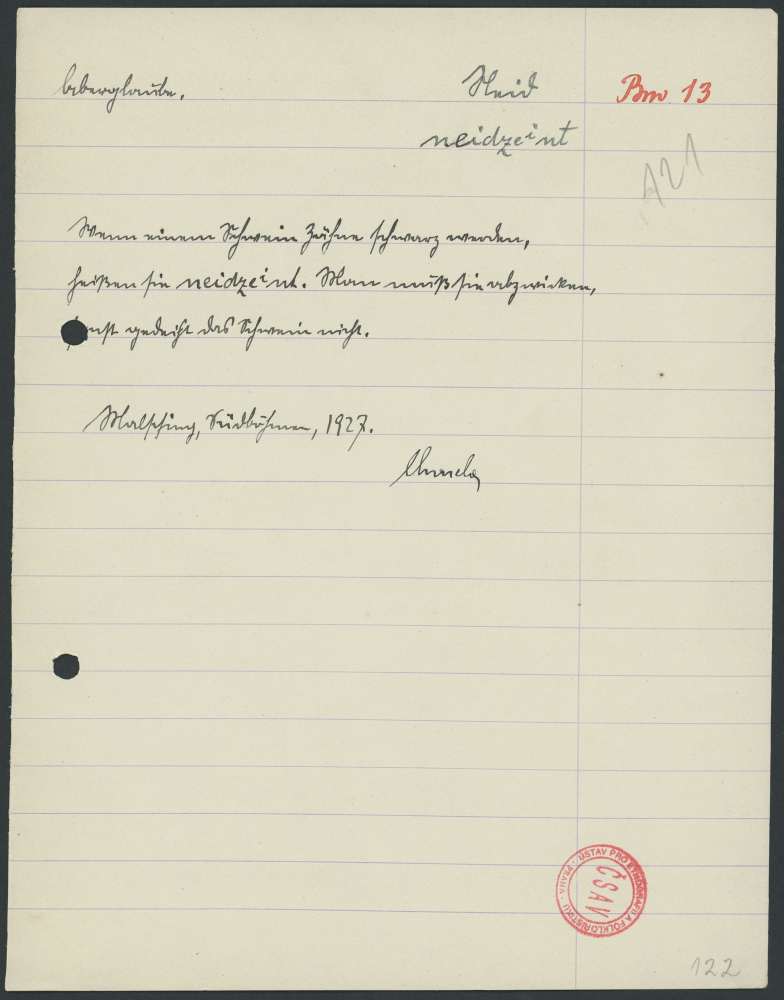 Aberglaube. Neid Bm 13
neidzeint
121
Wenn einem Schwein Zähne schwarz werden,
heißen sie neidzeint. Man muß sie abzwicken,
sonst gedeiht das Schwein nicht.
Malsching, Südböhmen, 1927.
ÚSTAV PRO ETNOGRAFII A FOLKLORISTIKU · PRAHA ·
ČSAV
122